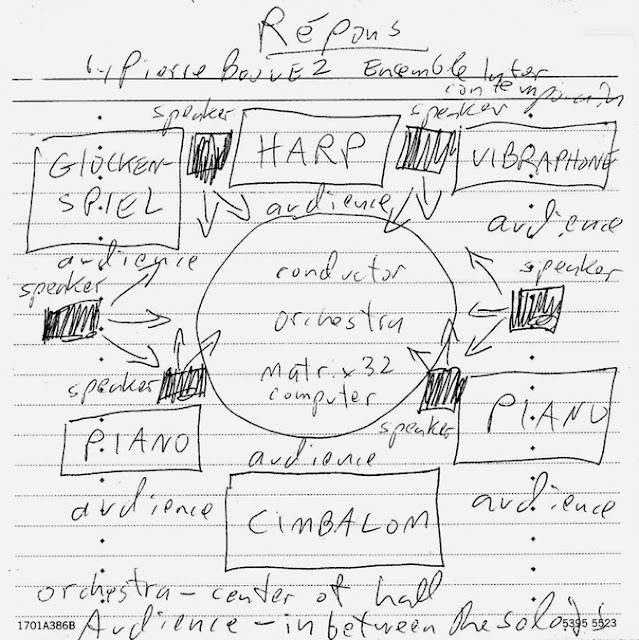 Répons
by Pierre BoulE2 Ensemble Inter
contemporain
speaker speaker
GLOCKEN- HARP VIBRAPHONE
SPIEL
audience audience
audience
speaker conductor speaker
orchestra
speaker matrix 32
computer
PIANO speaker PIANO
audience
audience CIMBALOM audience
orchestra - center of hall
1701A386B Audience - in between the soloists 5395 5523